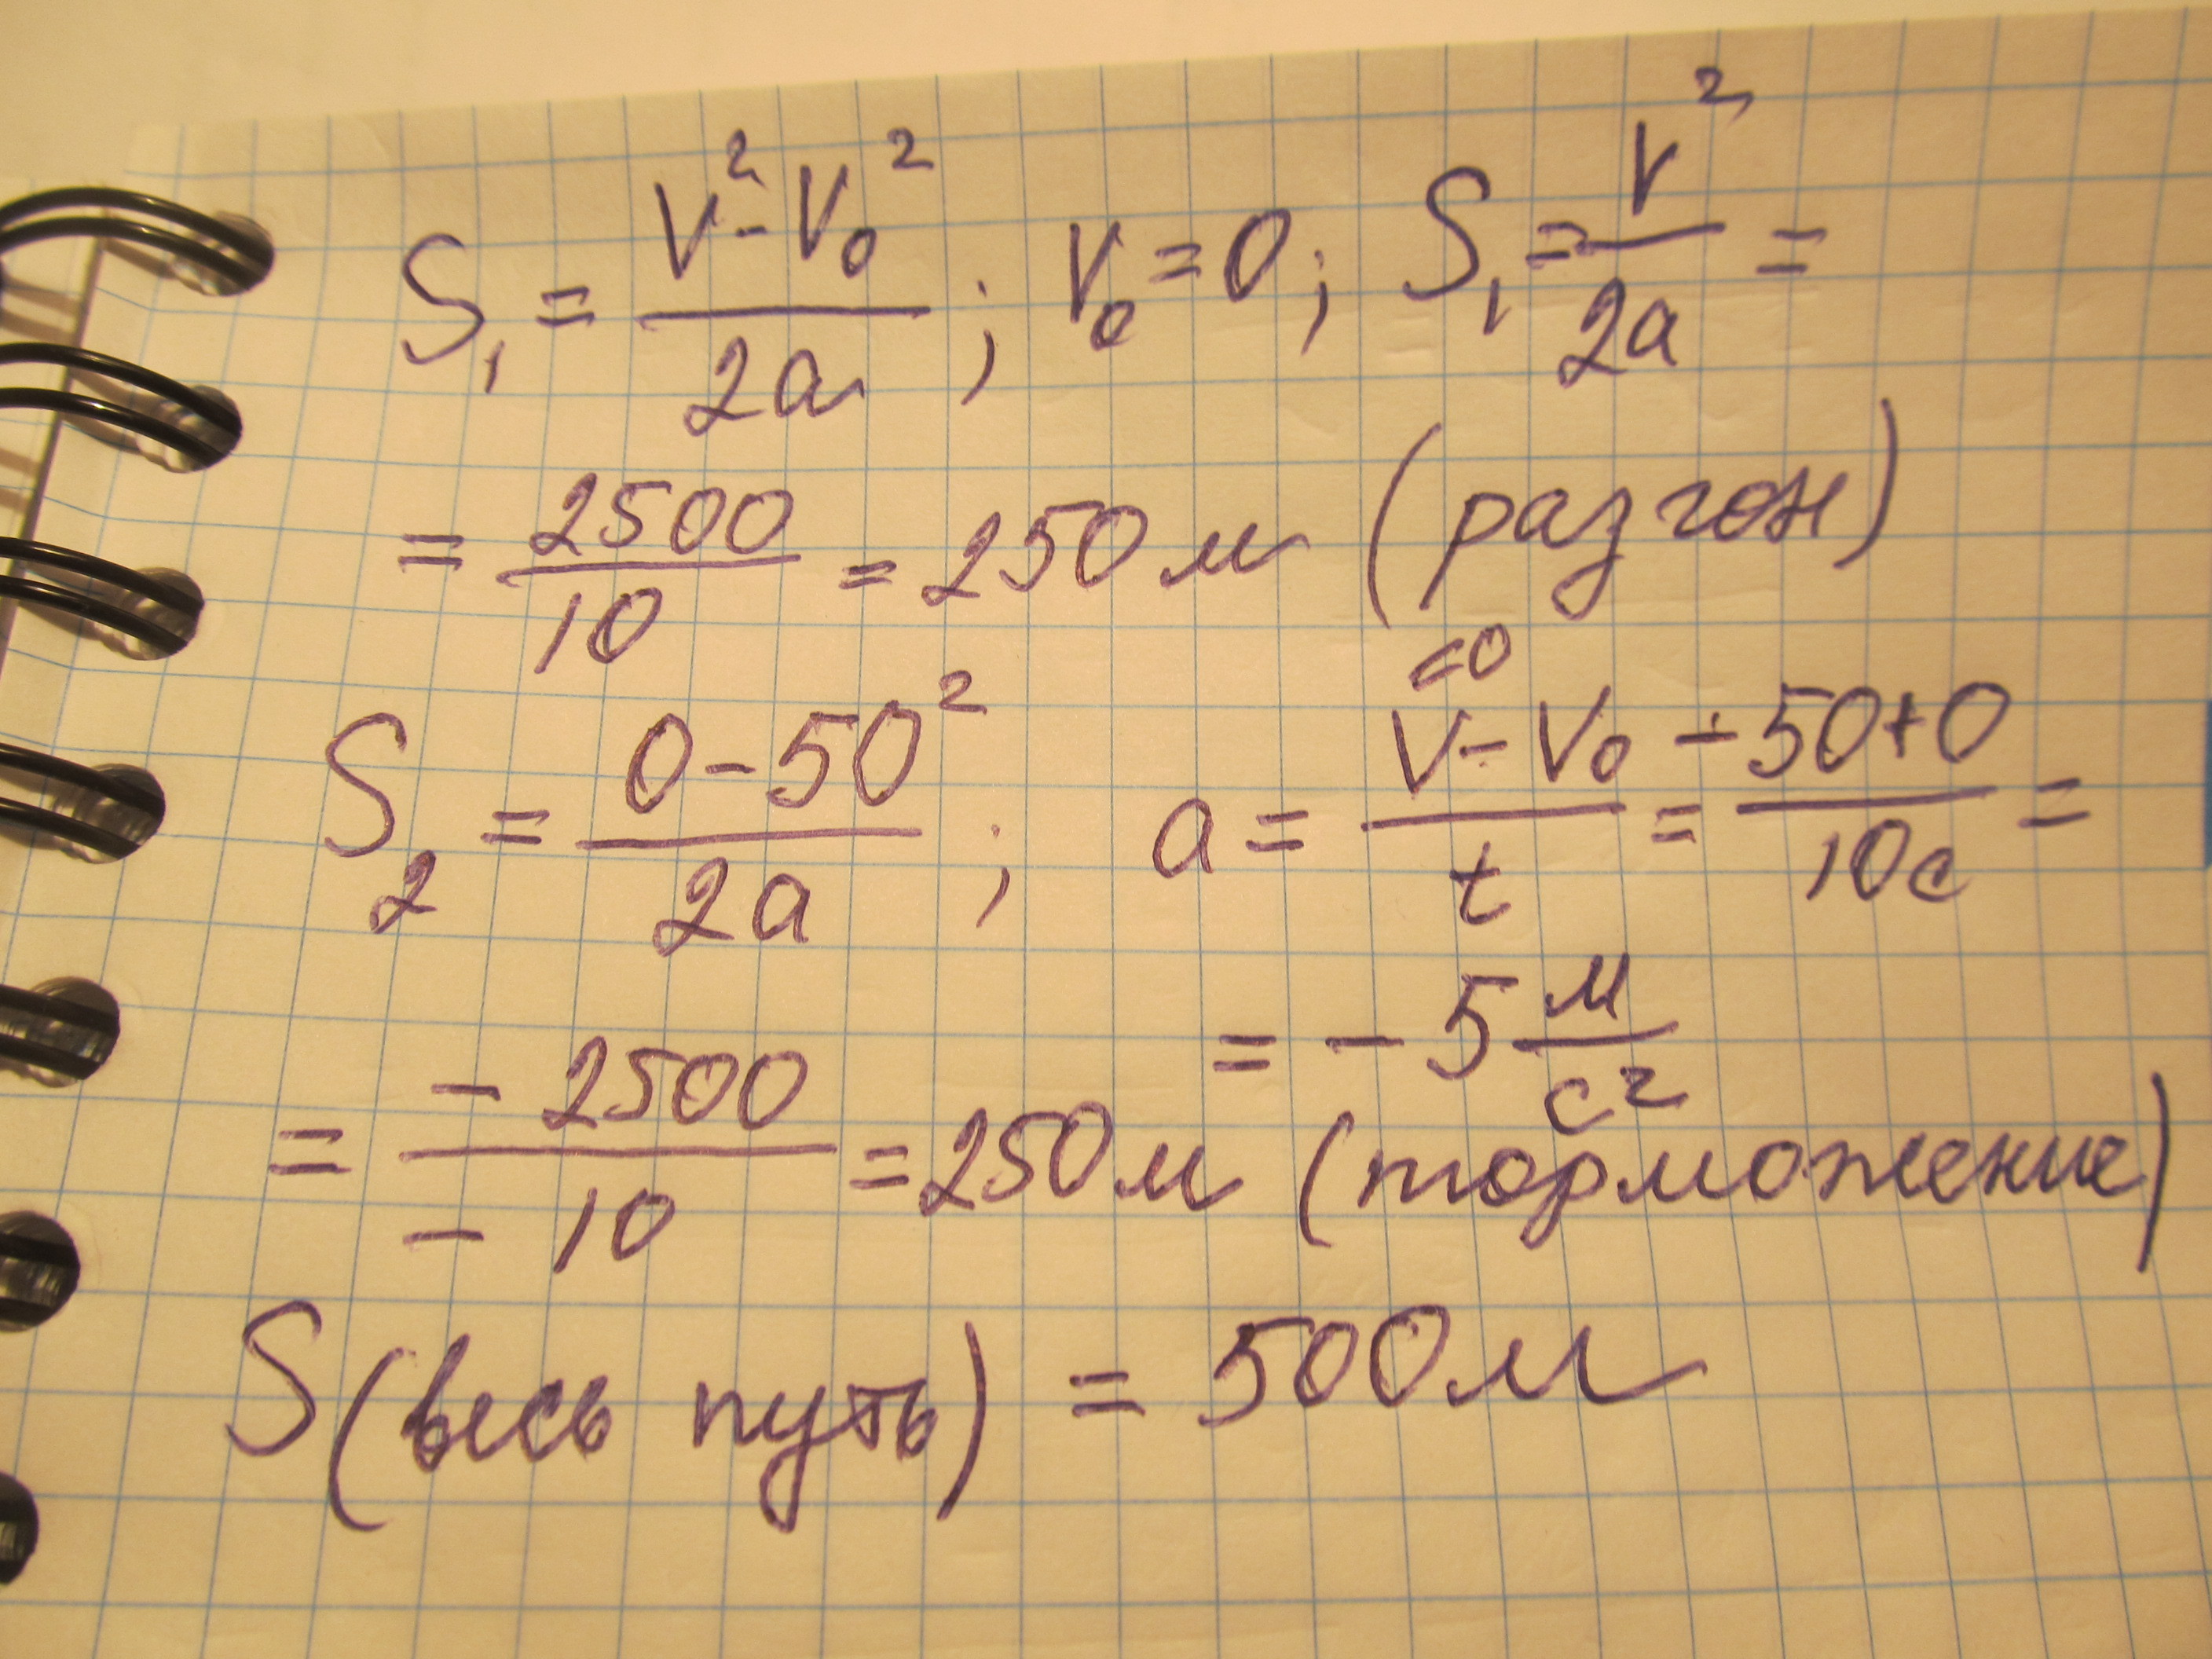 S₁ = (V² - V₀²)/(2a) ; V₀ = 0 ; S₁ = V²/(2a) =
= 2500/10 = 250 м (разгон)
S₂ = (0 - 50²)/(2a) ; a = (V⁼⁰ - V₀)/t = (-50+0)/(10с) =
= -5 м/с²
= (-2500)/(-10) = 250 м (торможение)
S (весь путь) = 500 м